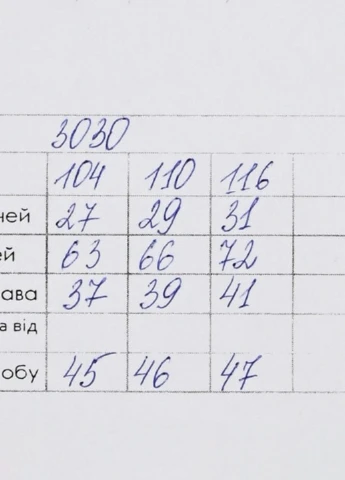 3030
104 110 116
ней 27 29 31
ей 63 66 72
ава 37 39 41
а від
обу 45 46 47